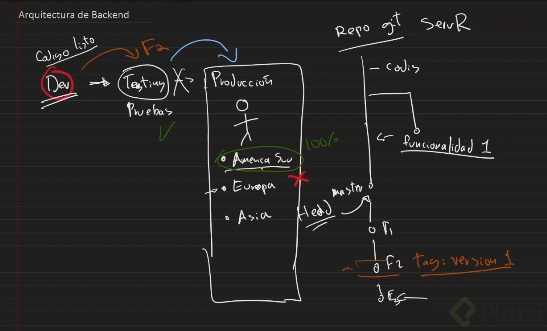 Arquitectura de Backend
Codigo listo
F2
Dev
Testing
Pruebas
Producción
100%
America Sur
Europa
Asia
Repo git
codigo
funcionalidad 1
master
Head
F1
F2
tag: version 1
Platzi